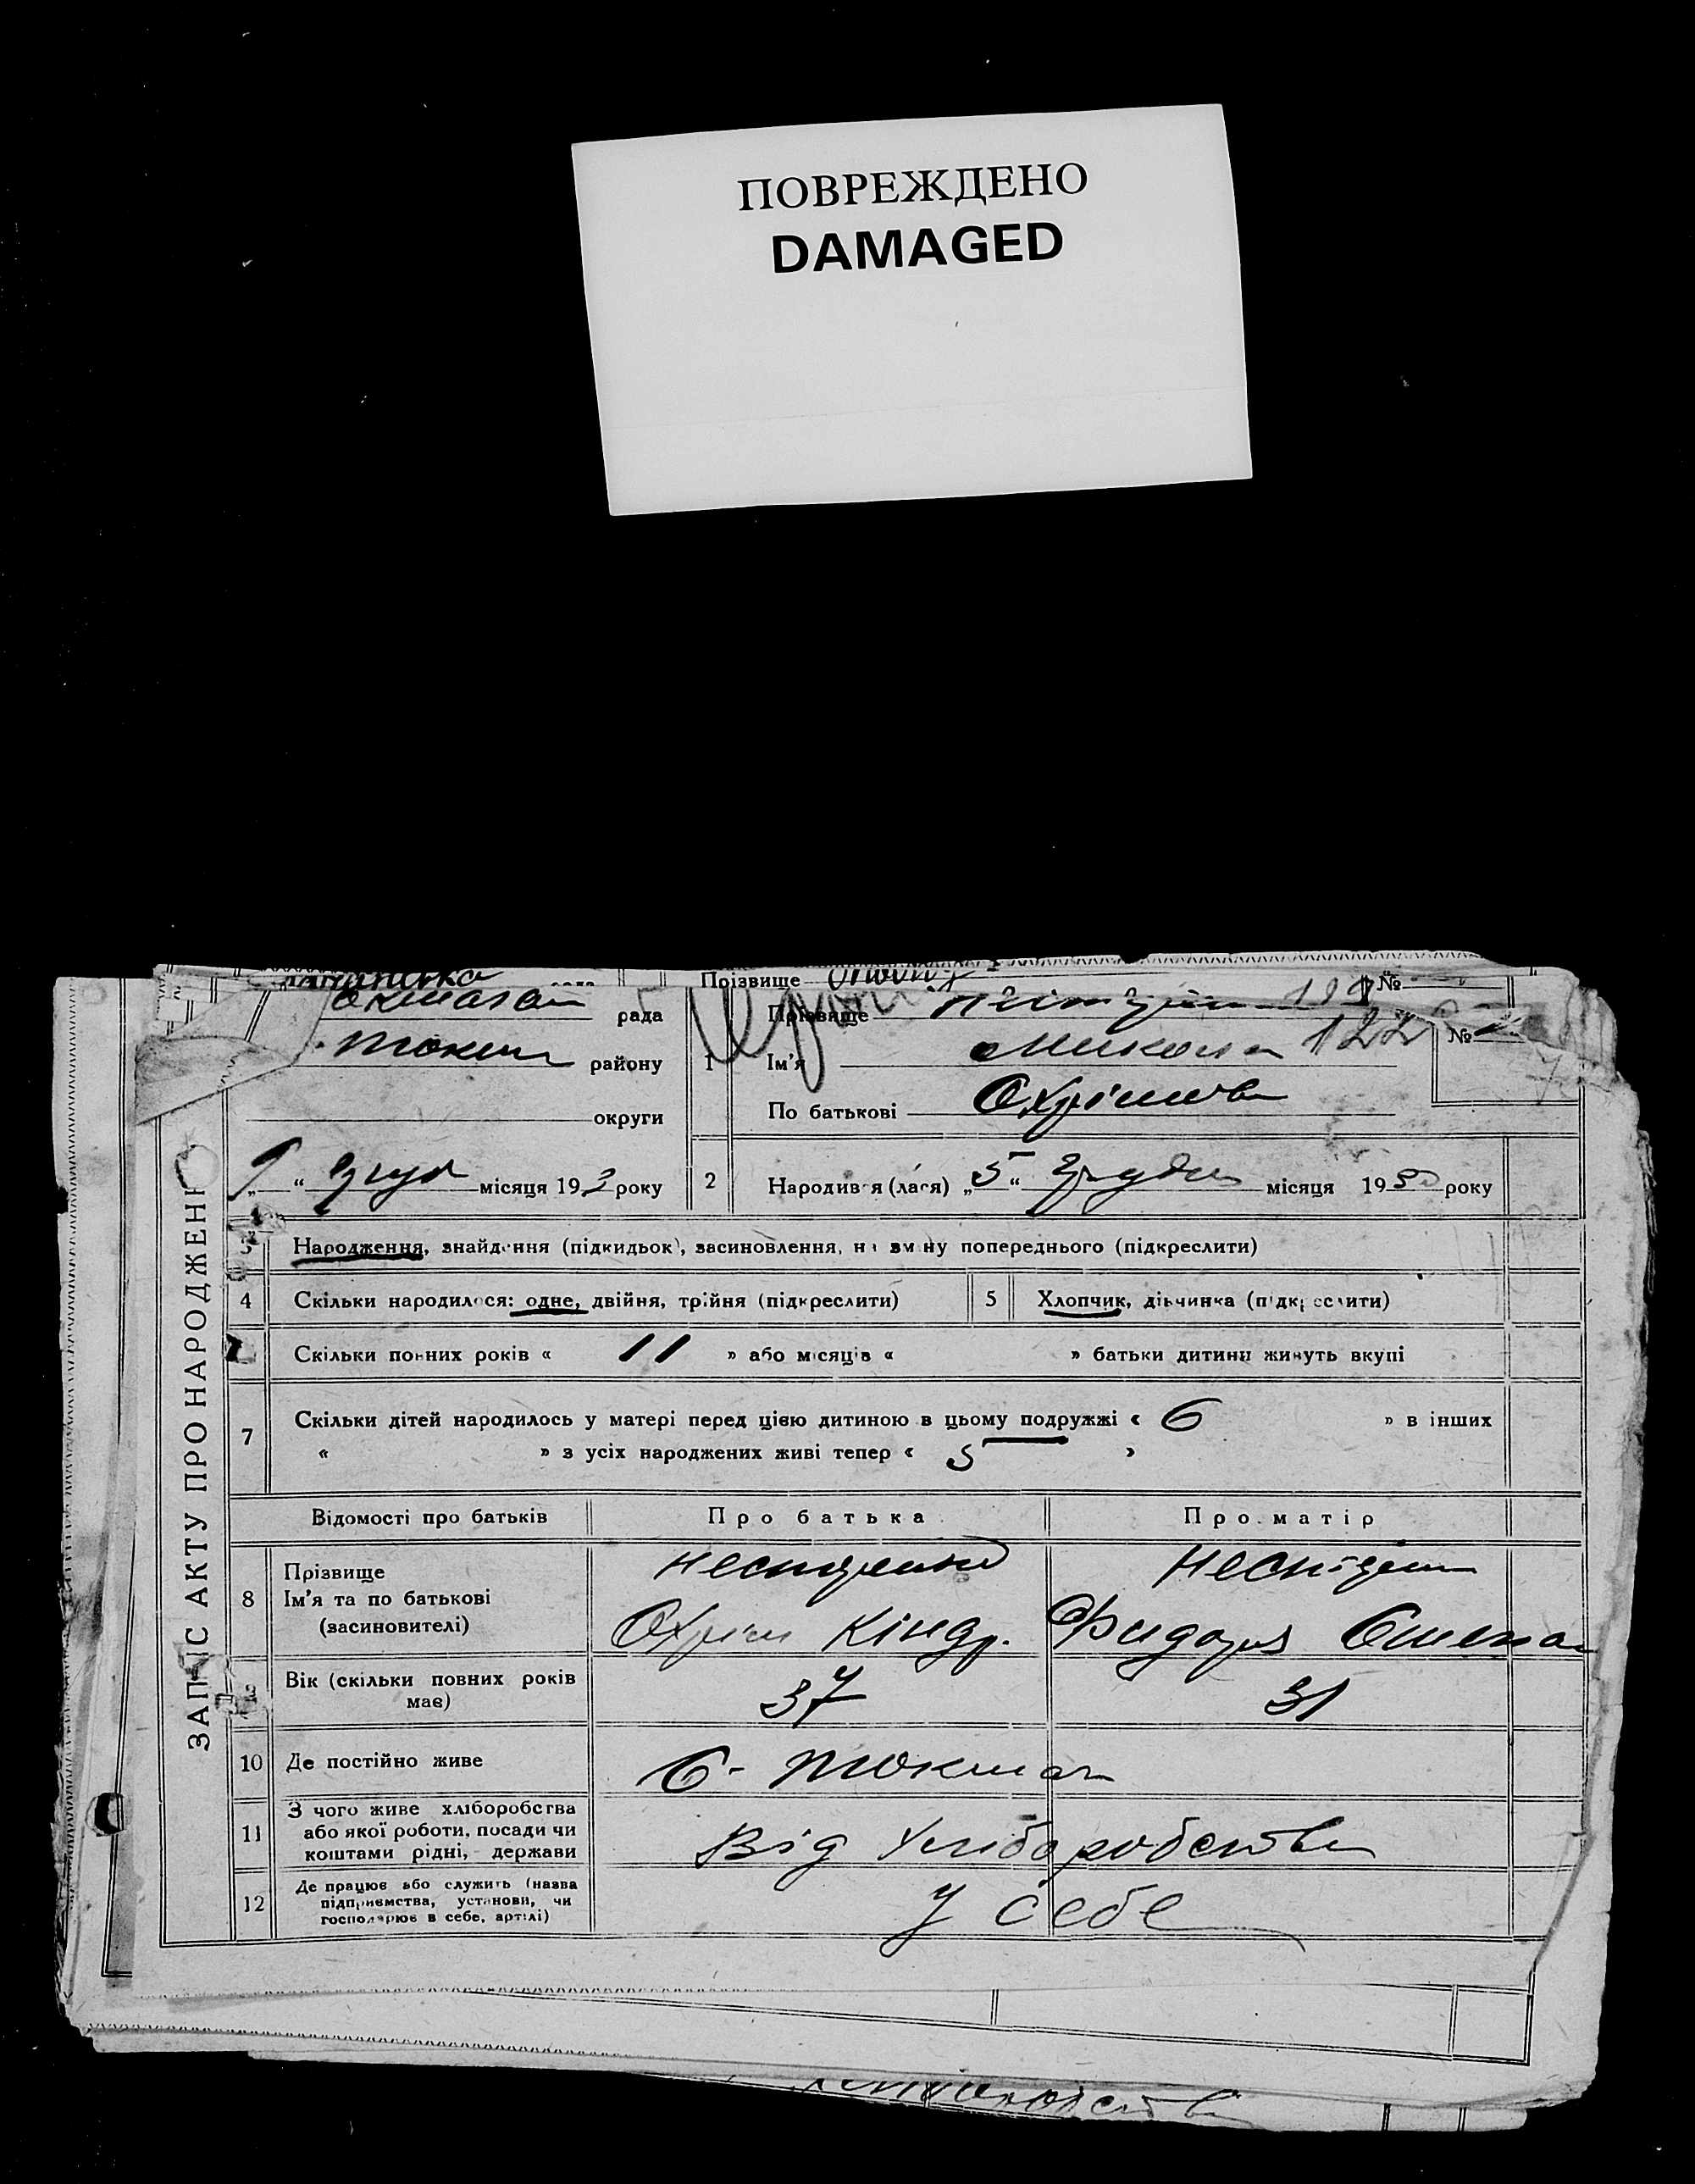 ПОВРЕЖДЕНО
DAMAGED
Прізвище №
рада Прізвище
району 1 Ім'я Микола 122 №
округи По батькові Охрімов
9 “ груд місяця 193 року 2 Народився (лася) „5“ грудня місяця 1930 року
ЗАПИС АКТУ ПРО НАРОДЖЕНН
3 Народження, знайдення (підкидьок), засиновлення, на зміну попереднього (підкреслити)
4 Скільки народилося: одне, двійня, трійня (підкреслити) 5 Хлопчик, дівчинка (підкреслити)
Скільки повних років « 11 » або місяців « » батьки дитини живуть вкупі
7 Скільки дітей народилось у матері перед цією дитиною в цьому подружжі « 6 » в інших
« » з усіх народжених живі тепер « 5 »
Відомості про батьків Про батька Про матір
8 Прізвище
Ім'я та по батькові Охрім Кіндр.
(засиновителі)
Вік (скільки повних років має) 37 31
10 Де постійно живе Б- Токмак
11 З чого живе хліборобства або якої роботи, посади чи коштами рідні, держави Від хліборобства
12 Де працює або служить (назва підприємства, установи, чи господарює в себе, артілі) У себе